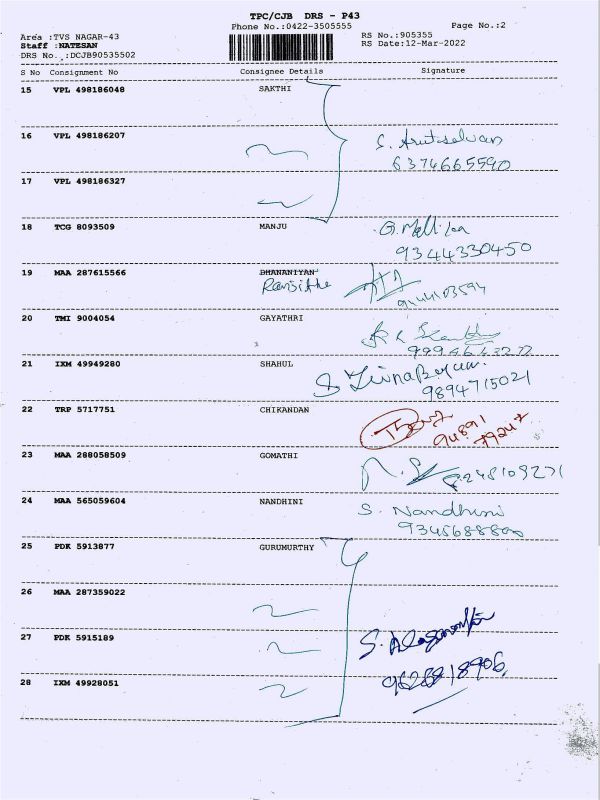 TPC/CJB DRS - P43
Phone No.:0422-3505555
Page No.:2
Area :TVS NAGAR-43
RS No.:905355
Staff :NATESAN
RS Date:12-Mar-2022
DRS No.:DCJB90535502
S No Consignment No Consignee Details Signature
15 VPL 498186048 SAKTHI
16 VPL 498186207
S. Arutselvan
6374665590
17 VPL 498186327
18 TCG 8093509 MANJU
9344330450
19 MAA 287615566 DHANANIYAN
20 TMI 9004054 GAYATHRI
21 IXM 49949280 SHAHUL
9894715021
22 TRP 5717751 CHIKANDAN
23 MAA 288058509 GOMATHI
24 MAA 565059604 NANDHINI
S. Nandhini
25 PDK 5913877 GURUMURTHY
26 MAA 287359022
27 PDK 5915189
28 IXM 49928051